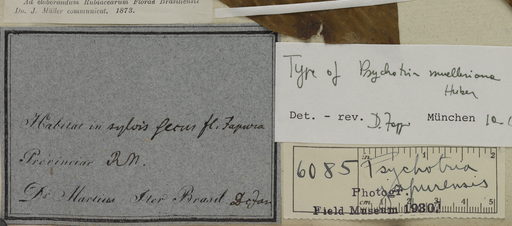 Ad elaborandum Rubiacearum Florae Brasiliensis
Dr. J. Müller communicat. 1873.
Habitat in sylvis secus fl. Japura
Provinciae R.N.
Dr Martius Iter Brasil.
Type of Psychotria muelleriana
Huber
Det. - rev. München
6085 Psychotria
Photogr. japurensis
Field Museum 1930
in. 1 2
cm. 1 2 3 4 5